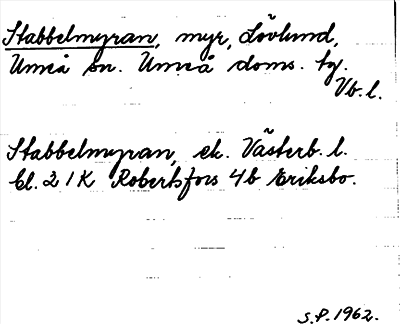 Stabbelmyran, myr, Lövlund,
Umeå sn. Umeå doms. tg.
Vb. l.
Stabbelmyran, ek. Västerb. l.
bl. 21 K Robertsfors 4b Eriksbo.
S.P. 1962.